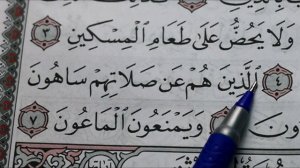 وَلَا يَحُضُّ عَلَىٰ طَعَامِ ٱلْمِسْكِينِ ٣
٤ ٱلَّذِينَ هُمْ عَن صَلَاتِهِمْ سَاهُونَ
ونَ وَيَمْنَعُونَ ٱلْمَاعُونَ ٧